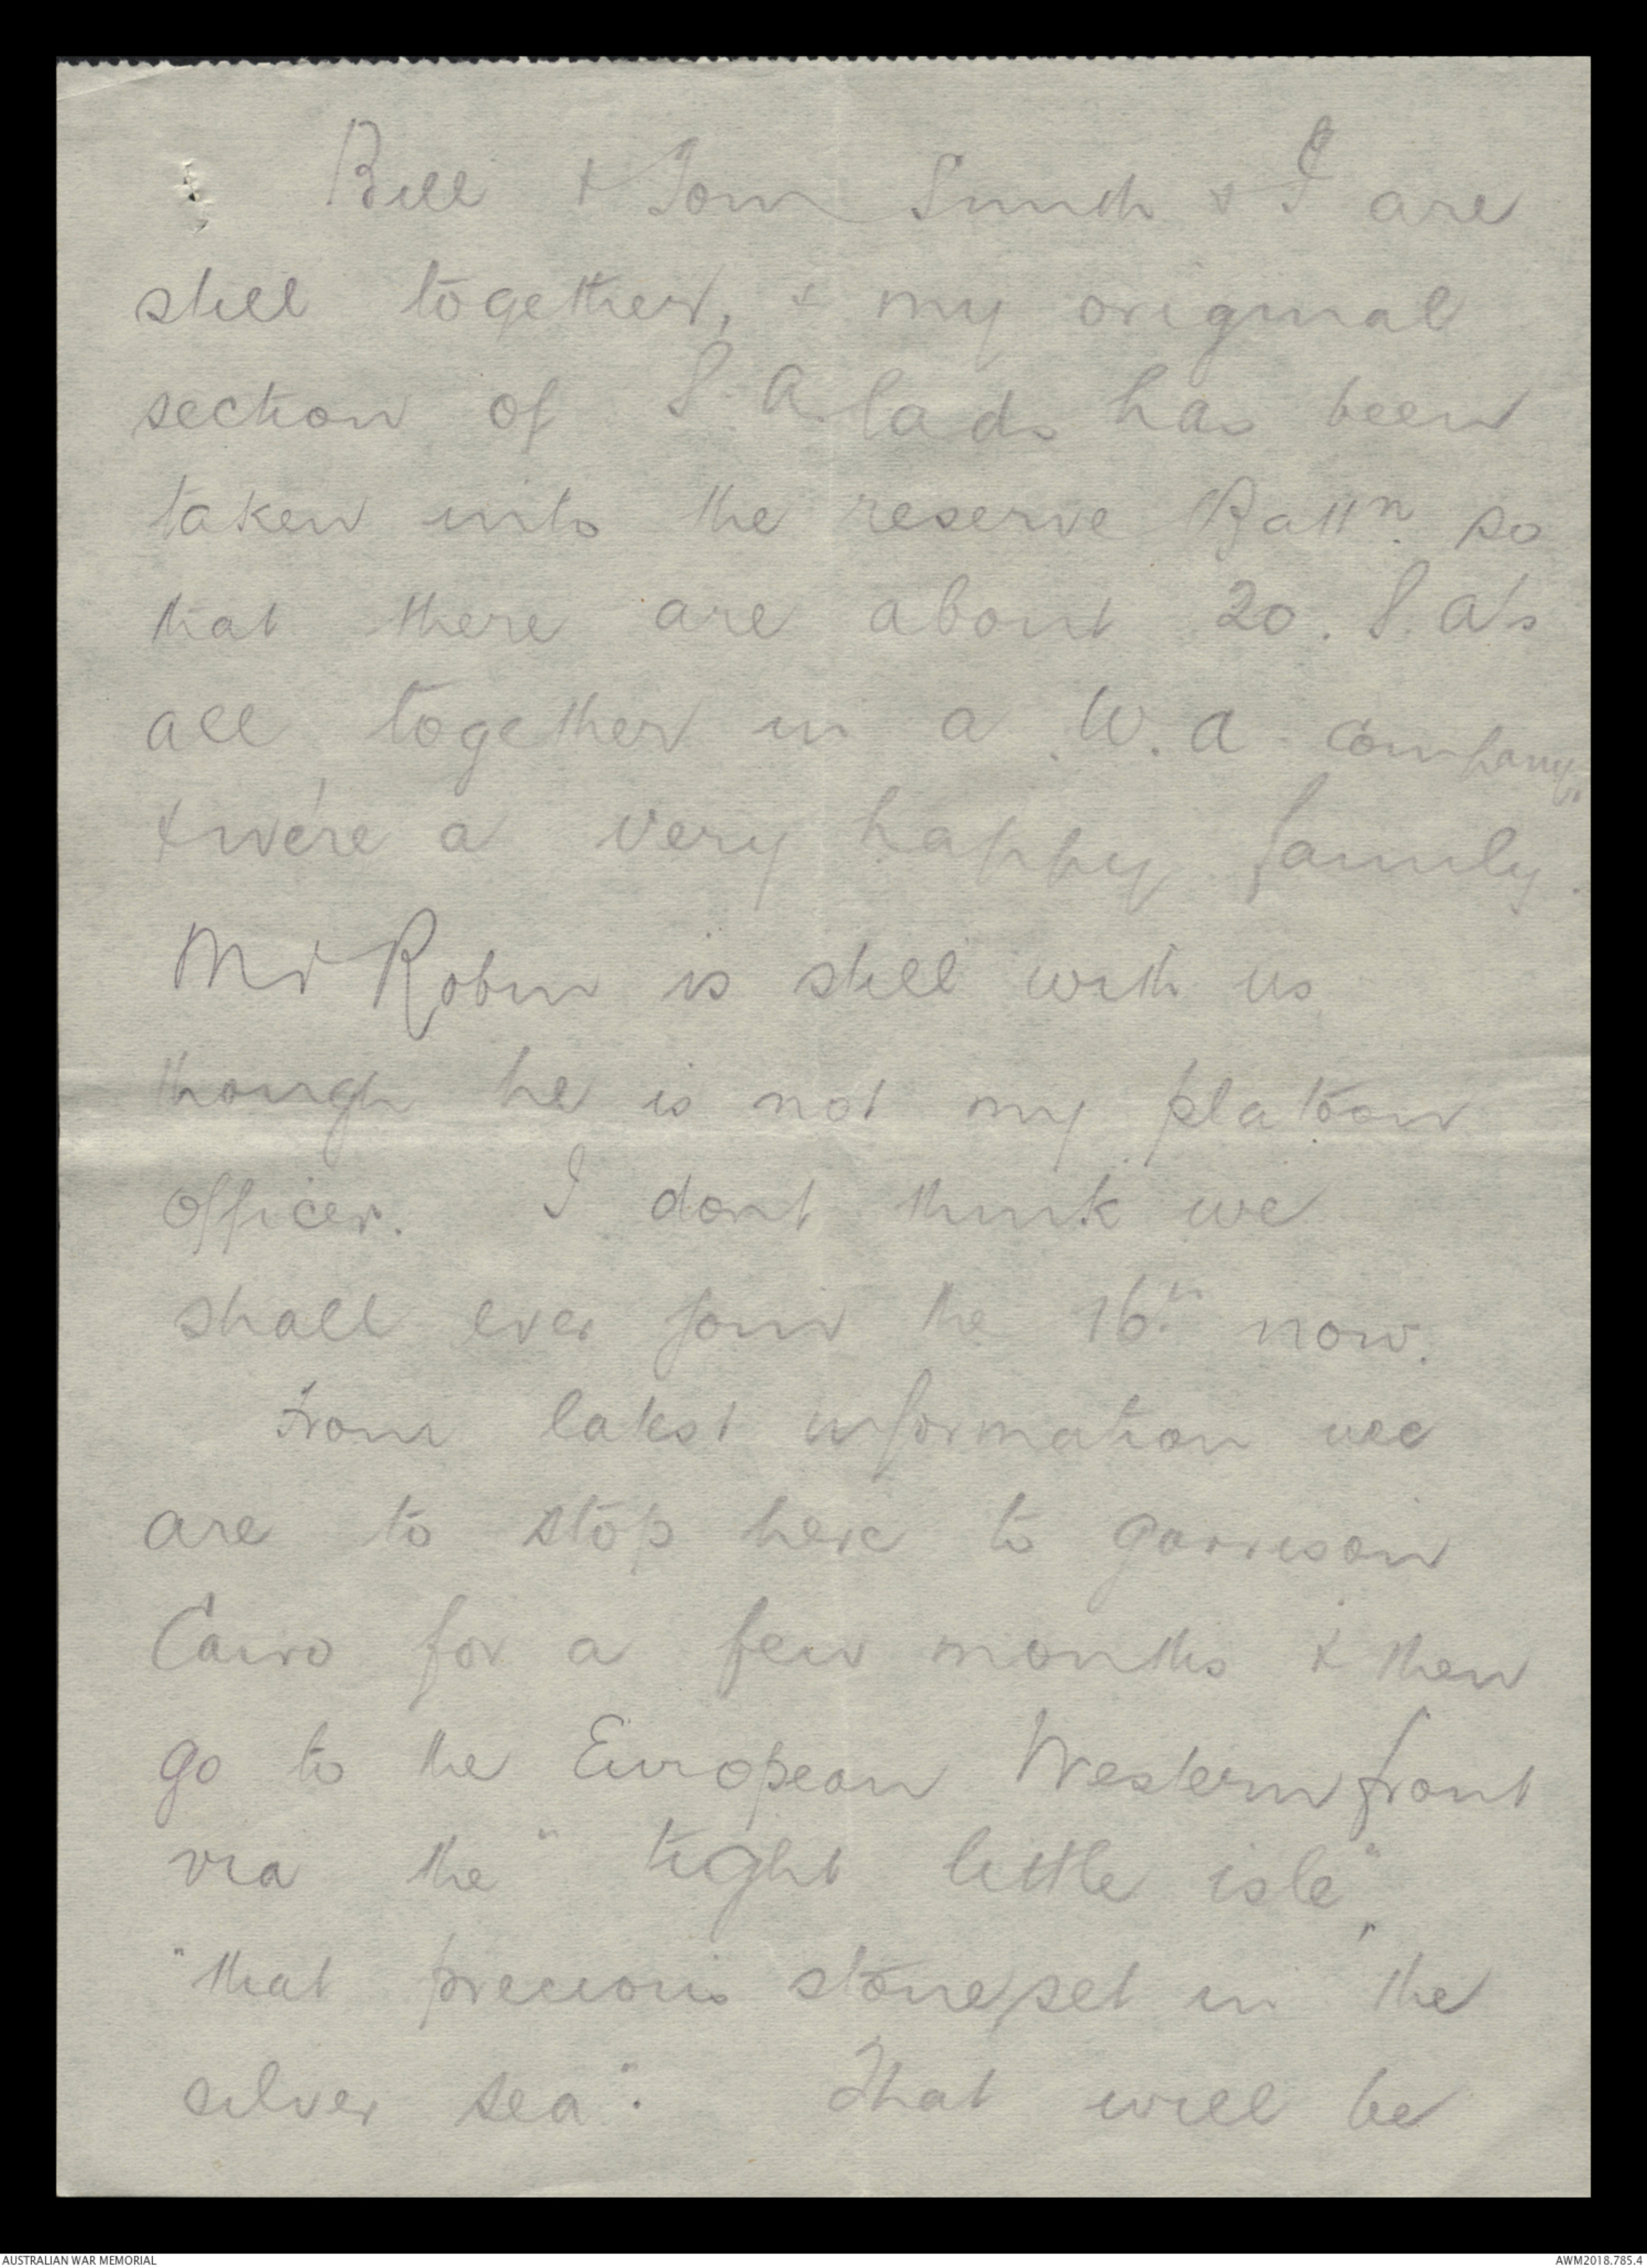 Bill + Tom Smith & I are
still together, & my original
section of S.A. lads has been
taken into the reserve Battn. so
that there are about 20. S.A's
all together in a W.A. company,
& we're a very happy family.
Mr Robin is still with us
though he is not my platoon
officer. I dont think we
shall ever join the 16th now.
From latest information we
are to stop here to garrison
Cairo for a few months & then
go to the European Western front
via the "tight little isle",
"that precious stone set in the
silver sea". That will be
AUSTRALIAN WAR MEMORIAL
AWM2018.785.4